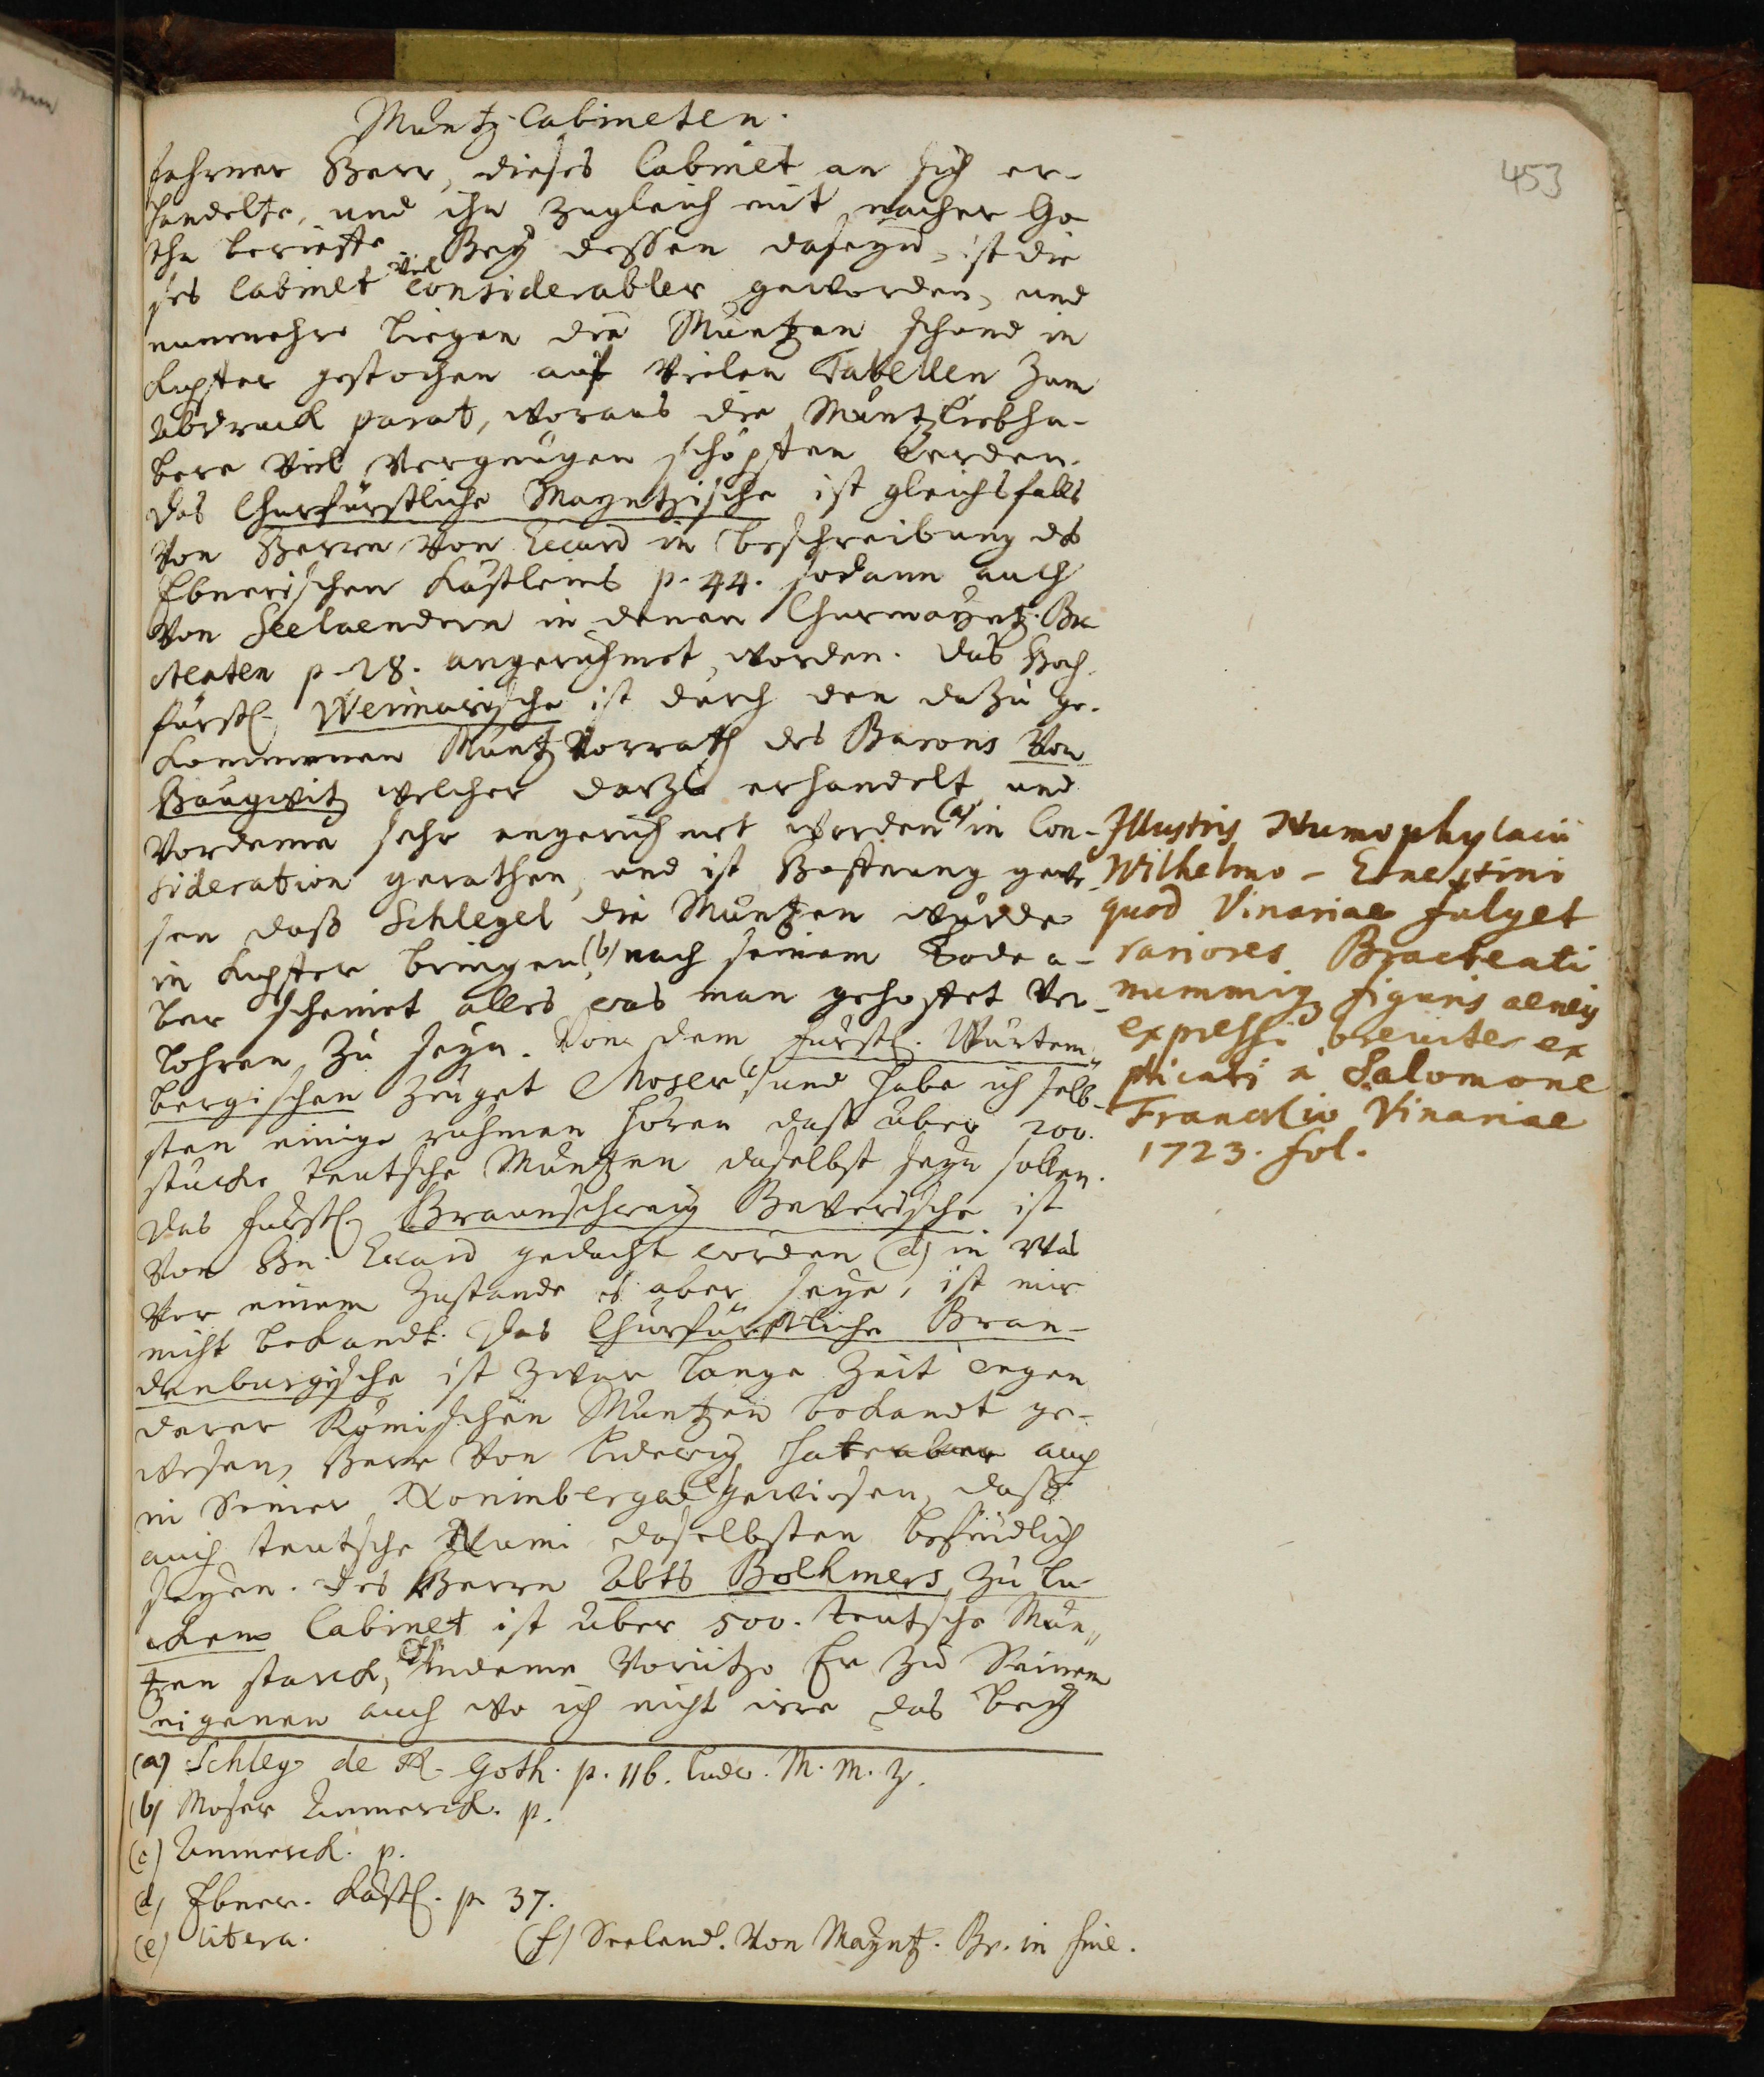 Müntz-Cabineten.
453
fahrner Herr, dieses Cabinet an sich er-
handelte, und ihn zugleich mit nacher Go
tha berieffe. Bey dessen daseyn, ist die
ses Cabinet viel considerabler geworden, und
nunmehro liegen die Müntzen schond in
Kupffer gestochen auf vielen Tabellen zum
Abdruck parat, woraus die Müntzliebha-
bere viel Vergnügen schöpffen werden.
Das Churfürstliche Mayntzische ist gleichsfalls
von Herrn von Eccard in beschreibung des
Ebnerischen Kästleins p. 44. sodann auch
von Seelaendern in denen Churmayntz. Bra
cteaten p. 28. angerühmet worden. Das Hoch-
fürstl. Weimarische ist durch den dazu ge-
kommenen Müntz Vorrath des Barons von
Haugwitz welcher darzu erhandelt und
vordeme sehr angerühmet worden (a) in Con-
sideration gerathen, und ist Hoffnung gewe-
sen daß Schlegel die Müntzen würde
in Kupffer bringen, (b) nach seinem Tode a-
ber scheinet alles was man gehoffet ver-
lohren zu seyn. Von dem Fürstl. Würtem-
bergischen zeuget Moser (c) und habe ich selb-
sten einige rühmen hören daß über 200.
stücke teutsche Müntzen daselbst seyn sollen.
Das Fürstl. Braunschweig Beverische ist
von Hn. Eccard gedacht worden (d) in was
vor einem Zustande es aber seye, ist mir
nicht bekandt. Das Churfürstliche Bran-
denburgische ist zwar lange Zeit wegen
derer Römischen Müntzen bekandt ge-
wesen, Herr von Ludewig hat aber auch
in Seiner (e) gewiesen, daß
auch teutsche Numi daselbsten befindlich
seyen. Des Herrn Abts Boehmers zu Lu
ckem Cabinet ist über 500. teutsche Mün-
tzen starck, (f) Indeme vorietzo Er zu Seinem
eigenen auch wo ich nicht irre das bey
Illustris Numophylacii
Wilhelmo-Ernestini
quod Vinariae fulget
rariores Bracteati
nummiq figuris aeneis
expressi breviter ex
plicati à Salomone
Franckio Vinariae
1723. fol.
(a) Schleg. de N. Goth. p. 116. Ludw. M. M. Z.
(b) Moser Anmerck. p.
(c) Anmerck. p.
(d) Ebner. Kästl. p. 37.
(e) litera.
(f) Seeland. von Mayntz. Br. in fine.